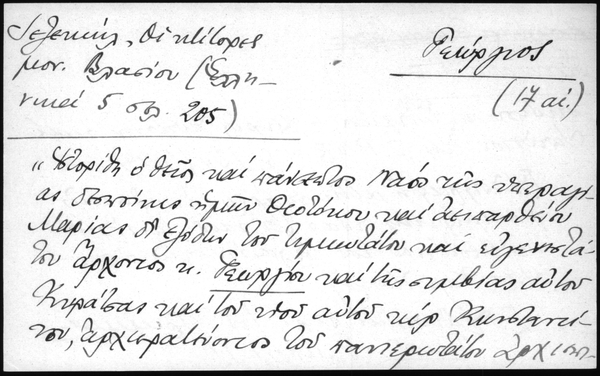 Γεώργιος
(17 αι.)
Γεζεκήλ, Οἱ κτίτορες
μον. Βλασίου (Ἑλλη-
νικά 5 σελ. 205)
„Ἱστορίθη ὁ θεῖος καὶ πάνσεπτος Ναός τῆς ὑπεραγί-
ας δεσποίνης ἡμῶν Θεοτόκου καὶ ἀειπαρθένου
Μαρίας δι' ἐξόδων τοῦ τιμιωτάτου καὶ εὐγενεστά-
του ἄρχοντος κ. Γεωργίου καὶ τῆς συμβίας αὐτοῦ
Κυράτσας καὶ τοῦ υἱοῦ αὐτοῦ κὺρ Κωνσταντί-
νου, ἀρχιερατεύοντος τοῦ πανιερωτάτου ἀρχιεπι-